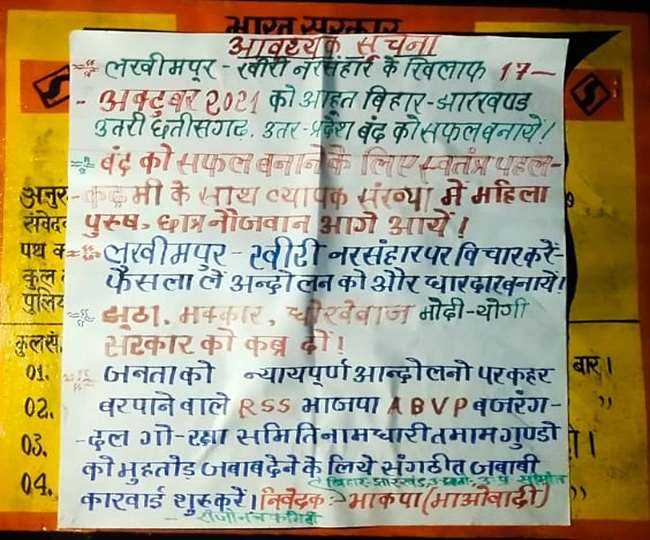 भारत सरकार
आवश्यक सूचना
लखीमपुर - खीरी नरसंहार के खिलाफ 17-
- अक्टुबर 2021 को आहुत बिहार-झारखण्ड
उतरी छतीसगढ़. उतर-प्रदेश बंद को सफल बनायें!
बंद को सफल बनाने के लिए स्वतंत्र पहल-
- कदमी के साथ व्यापक संख्या में महिला
पुरुष, छात्र नौजवान आगे आयें!
लखीमपुर - खीरी नरसंहार पर विचार करें-
फैसला लें अन्दोलन को और धारदार बनायें!
झुठा, मक्कार, धोखेबाज मोदी-योगी
सरकार को कब्र दो!
जनता को न्यायपूर्ण आन्दोलनो पर कहर
बरपाने वाले RSS भाजपा ABVP बजरंग-
- दल गो-रक्षा समिति नामधारी तमाम गुण्डो
को मुहतोड़ जबाब देने के लिये संगठीत जबाबी
कारवाई शुरू करें। निवेदक:- भाकपा (माओवादी)
अनुर
संवेदन
पथ क
कुल
पुलि
कुल सं.
01.
02.
03.
04.
बार।
”